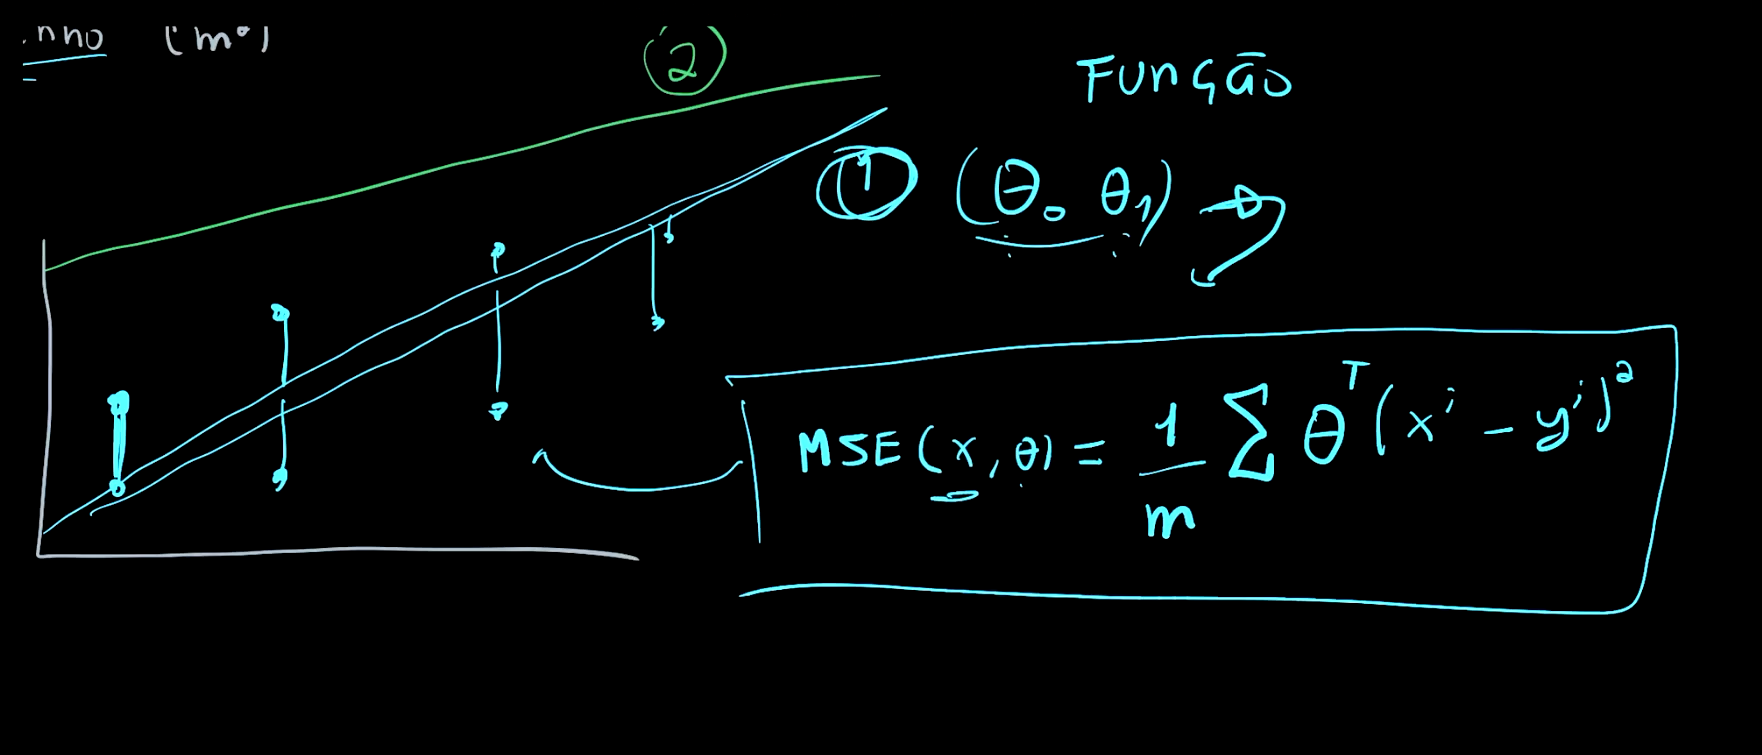 (m²)
2
Função
1 (θ₀ θ₁)
MSE(x, θ) = 1/m Σ θᵀ(xⁱ - yⁱ)²